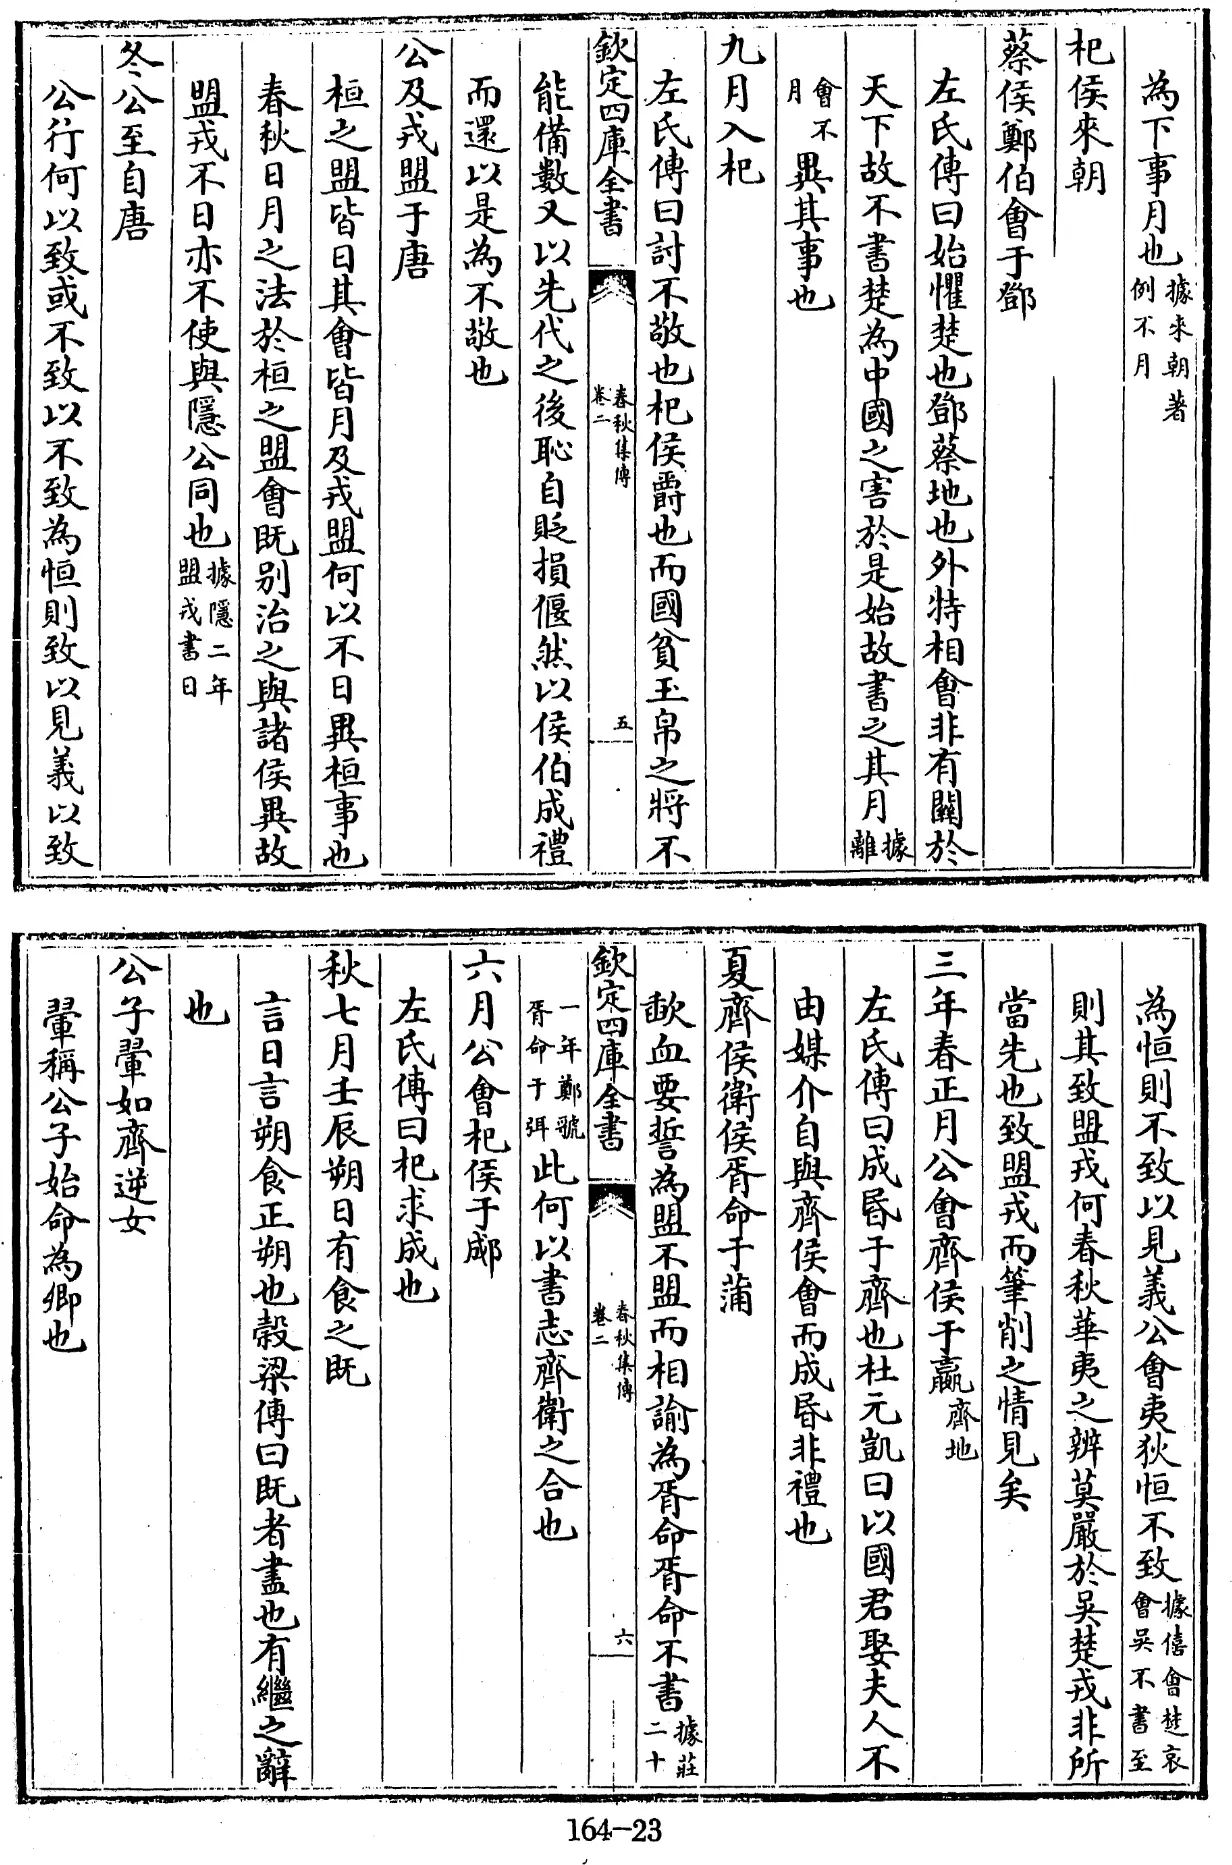 為下事月也據來朝著例不月
杞侯來朝
蔡侯鄭伯會于鄧
左氏傳曰始懼楚也鄧蔡地也外特相會非有關於
天下故不書楚為中國之害於是始故書之其月據離
會不月異其事也
九月入杞
左氏傳曰討不敬也杞侯爵也而國貧玉帛之將不
欽定四庫全書
春秋集傳
卷二
五
能備數又以先代之後恥自貶損偃然以侯伯成禮
而還以是為不敬也
公及戎盟于唐
桓之盟皆日其會皆月及戎盟何以不日異桓事也
春秋日月之法於桓之盟會既别治之與諸侯異故
盟戎不日亦不使與隱公同也據隱二年盟戎書日
冬公至自唐
公行何以致或不致以不致為恒則致以見義以致
為恒則不致以見義公會夷狄恒不致據僖會楚哀會吳不書至
則其致盟戎何春秋華夷之辨莫嚴於吳楚戎非所
當先也致盟戎而筆削之情見矣
三年春正月公會齊侯于嬴齊地
左氏傳曰成昏于齊也杜元凱曰以國君娶夫人不
由媒介自與齊侯會而成昏非禮也
夏齊侯衛侯胥命于蒲
歃血要誓為盟不盟而相諭為胥命胥命不書據莊二十
欽定四庫全書
春秋集傳
卷二
六
一年鄭虢胥命于弭此何以書志齊衛之合也
六月公會杞侯于郕
左氏傳曰杞求成也
秋七月壬辰朔日有食之既
言日言朔食正朔也穀梁傳曰既者盡也有繼之辭
也
公子翬如齊逆女
翬稱公子始命為卿也
164-23